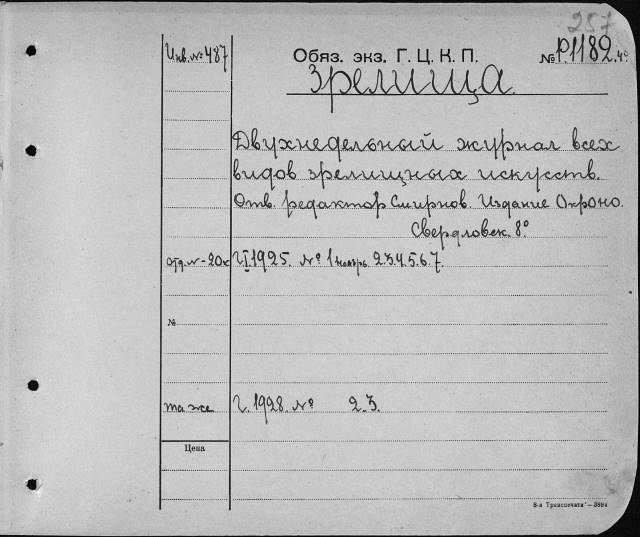 257
Инв. № 487
Обяз. экз. Г. Ц. К. П.
№ Р.1182.4º
Зрелища.
Двухнедельный журнал всех
видов зрелищных искусств.
Отв. редактор Смирнов. Издание Окроно.
Свердловск. 8º
отд. № - 20к Г.I.1925. № 1 ноябрь. 2.3.4.5.6.7.
№
та же Г. 1928. № 2.3.
Цена